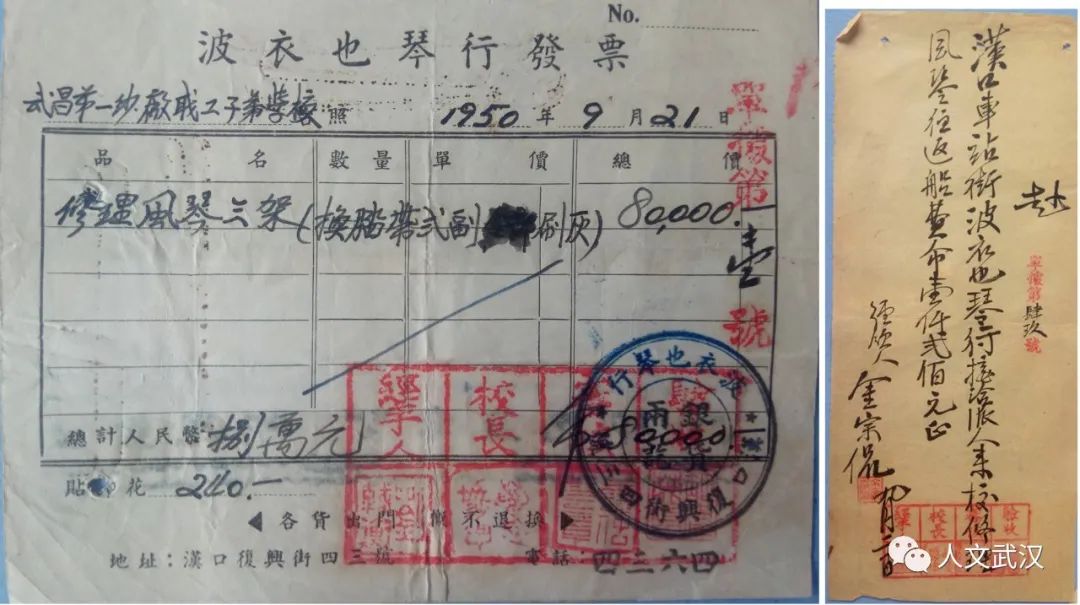 No.
波衣也琴行發票
武昌第一紗廠職工子弟學校 照 1950 年 9 月 21 日
品名 數量 單價 總價
修理風琴三架(換踏帶弍副 刷灰) 80,000.
單據第壹號
總計人民幣 捌萬元 80000
貼印花 240.—
◀各貨出門 概不退換▶
地址：漢口復興街四三號 電話：四三六四
經手人 校長
波衣也琴行
銀錢兩訖
漢口復興街四三號
赴
漢口車站街波衣也琴行接洽派人來校修理
風琴往返船費币壹仟弍佰元正
經領人 金宗侃
單據第肆玖號
校長
人文武汉